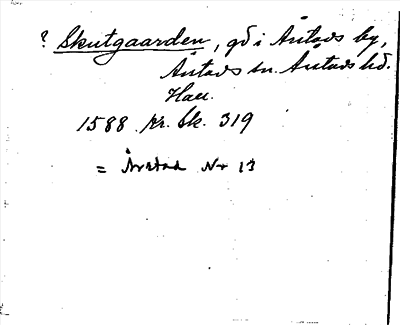 ? Skutgaarden, gd i Åstads by,
Åstads sn. Åstads hd.
Hall.
1588 Kr. Sk. 319
= Årstad Nr 13